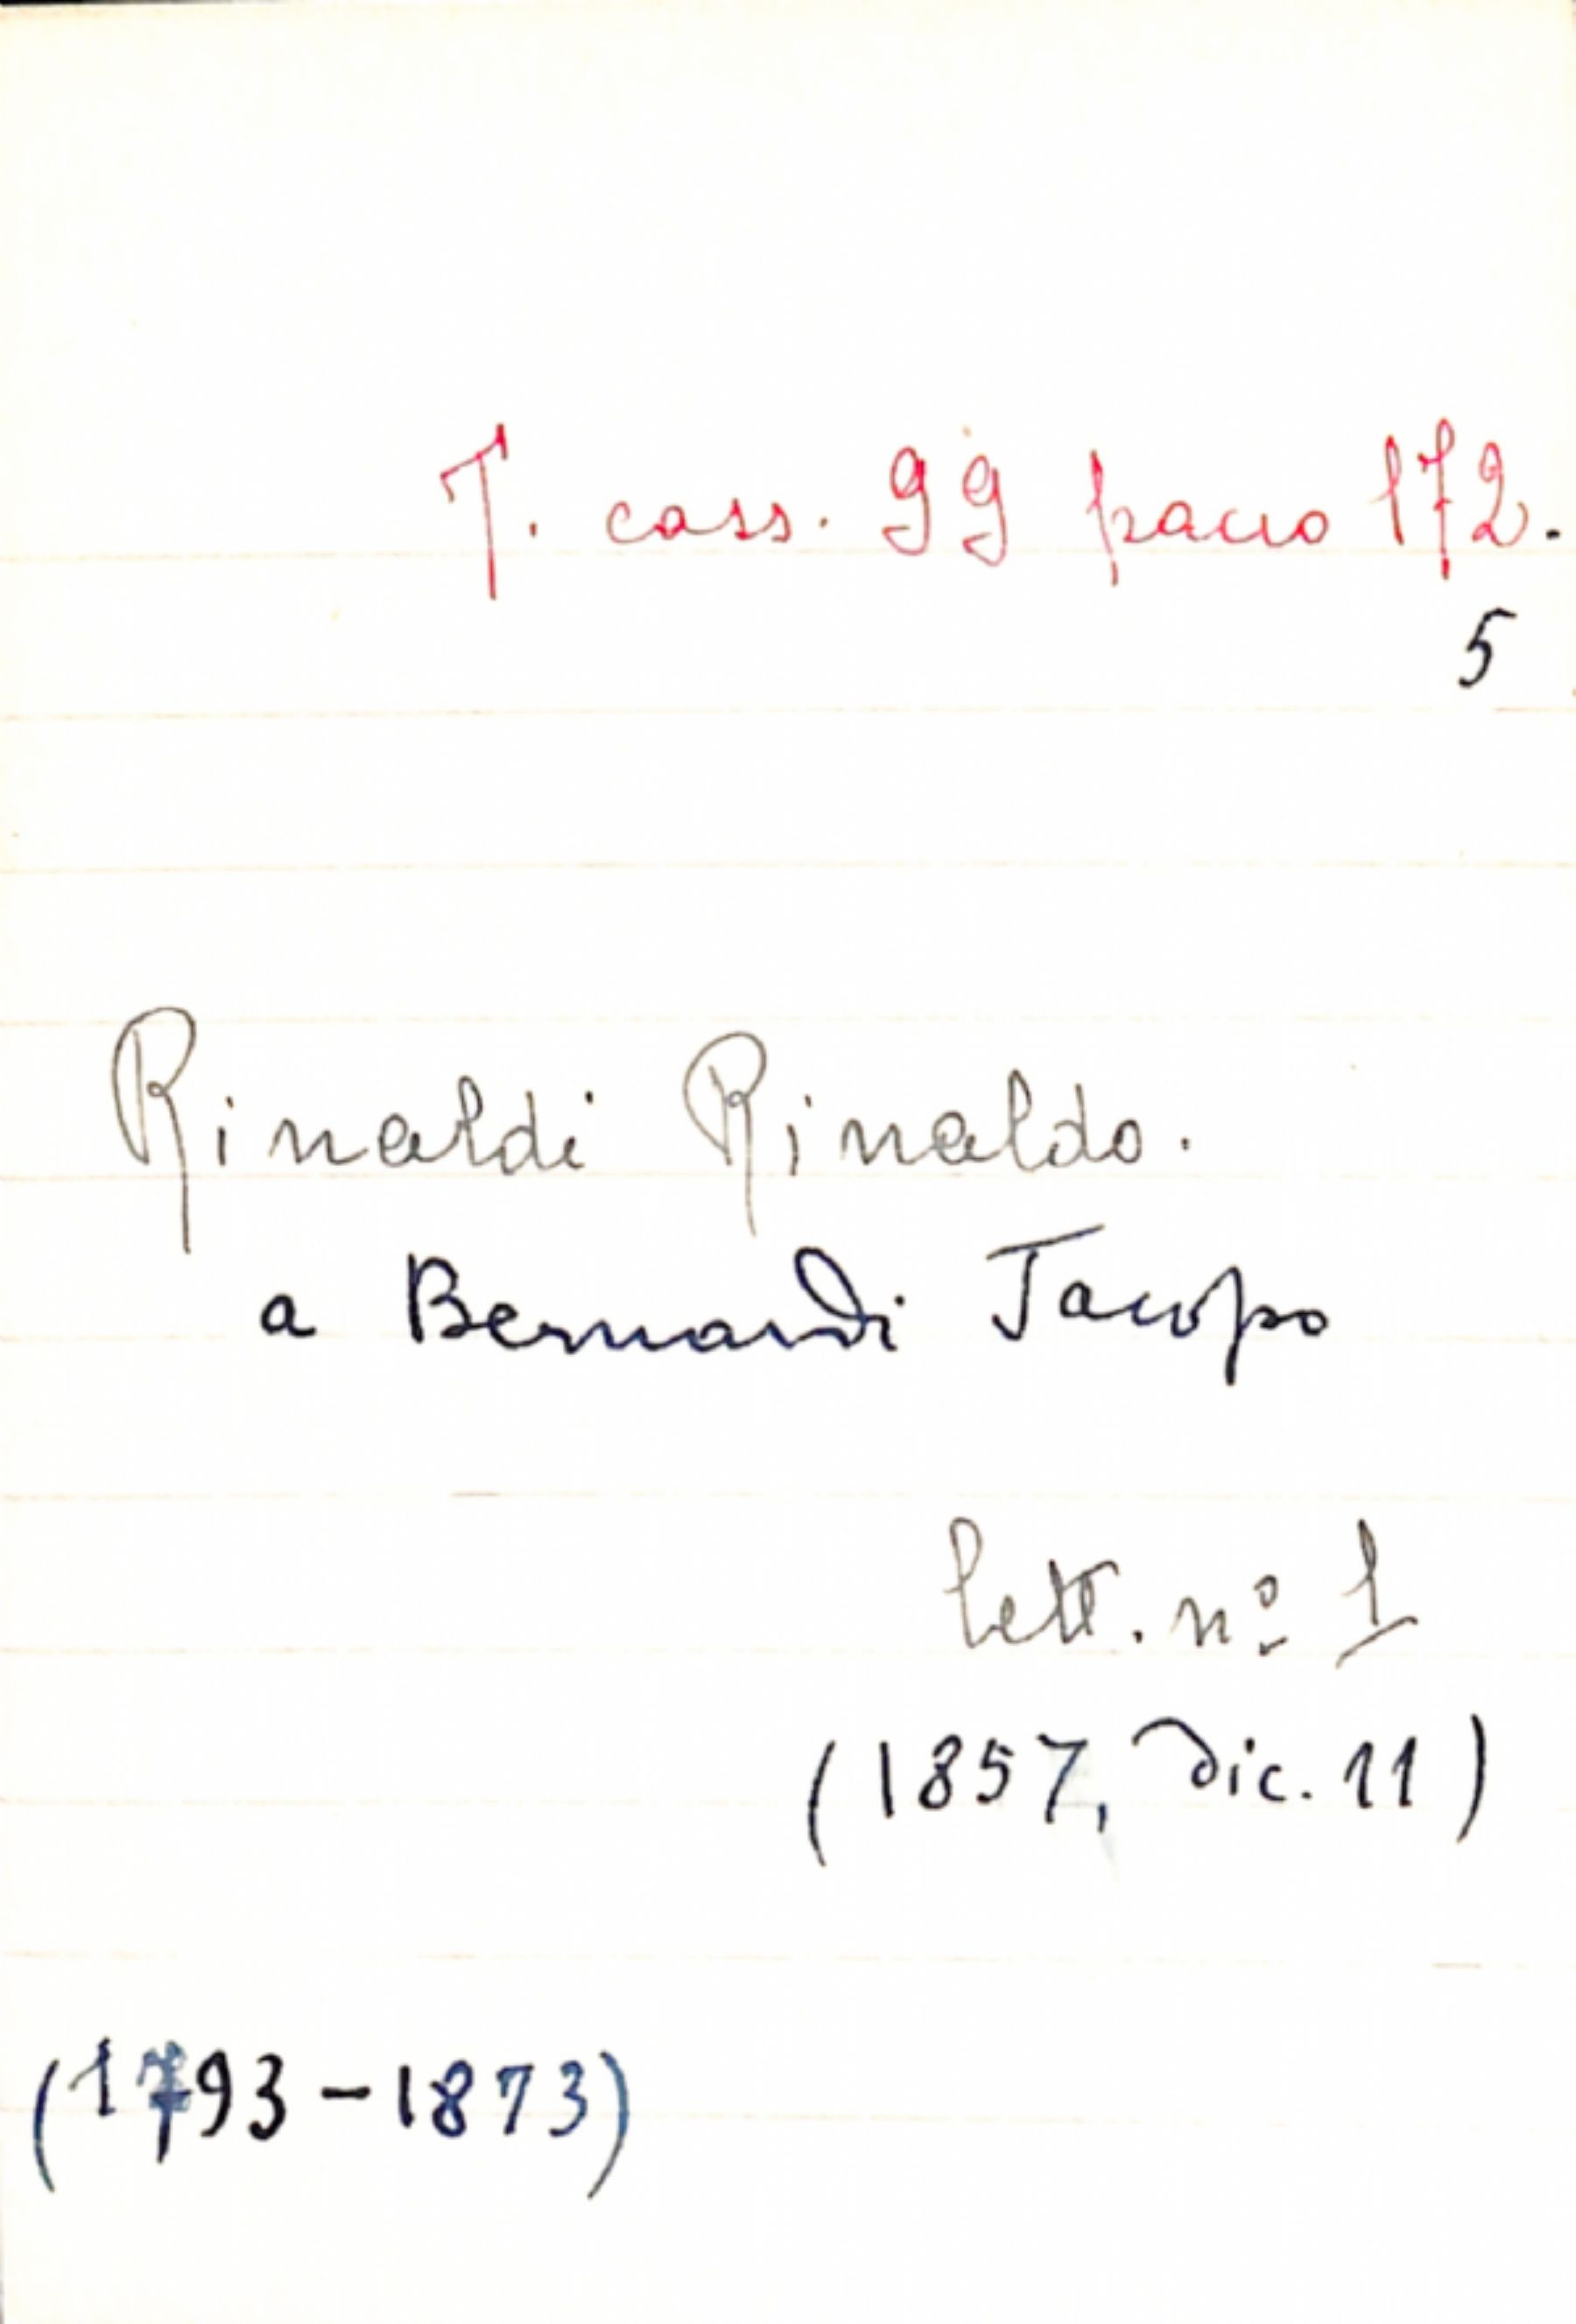 T. cass. 99 pacco 172.
5
Rinaldi Rinaldo.
a Bernardi Jacopo
lett. nº 1
(1857, dic. 11)
(1793-1873)